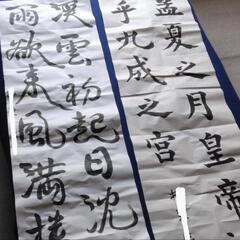 孟夏之月皇帝
乎九成之宮
渓雲初起日沈
雨欲来風満楼